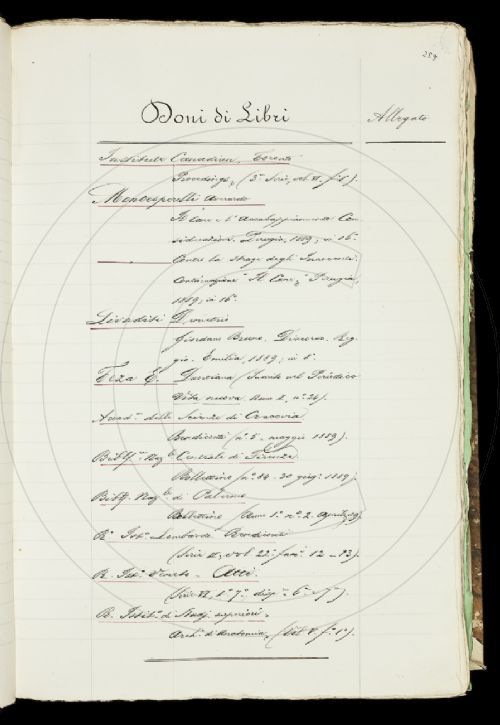 259
Doni di Libri
Allegato
Institute Canadien, Toronto
Proceedings, (3ª Serie, vol. VI. fº 2º).
Menecaperelli Averardo
Il Cane e l'Accalappiamento Con
siderazioni. Perugia, 1889, in 16º.
Contro la strage degli Innocenti.
Continuazione "Il Cane", Perugia,
1889, in 16º.
Livaditi Demetrio
Giordano Bruno. Discorso. Reg
gio. Emilia, 1889, in 8º.
Teza E. Dantiana (Inserito nel Periodico
Vita nuova. Anno I, nº 26).
Accadª delle Scienze di Cracovia
Rendiconti (nº 5. maggio 1889).
Bibliotª Nazle Centrale di Firenze
Bollettino (nº 84. 30 giugº 1889).
Bibliotª Nazle di Palermo
Bollettino (Anno 1º nº 2. Aprile,
Rº Istº Lombardo Rendiconti
(Serie II, vol 22º fascº 12-13).
R. Istº Veneto. Atti.
(Serie VI, tº 7º dispª 6ª e 7ª).
R. Istitº di Studj superiori.
Archº di Anatomia, (Vol. V fº 1º).